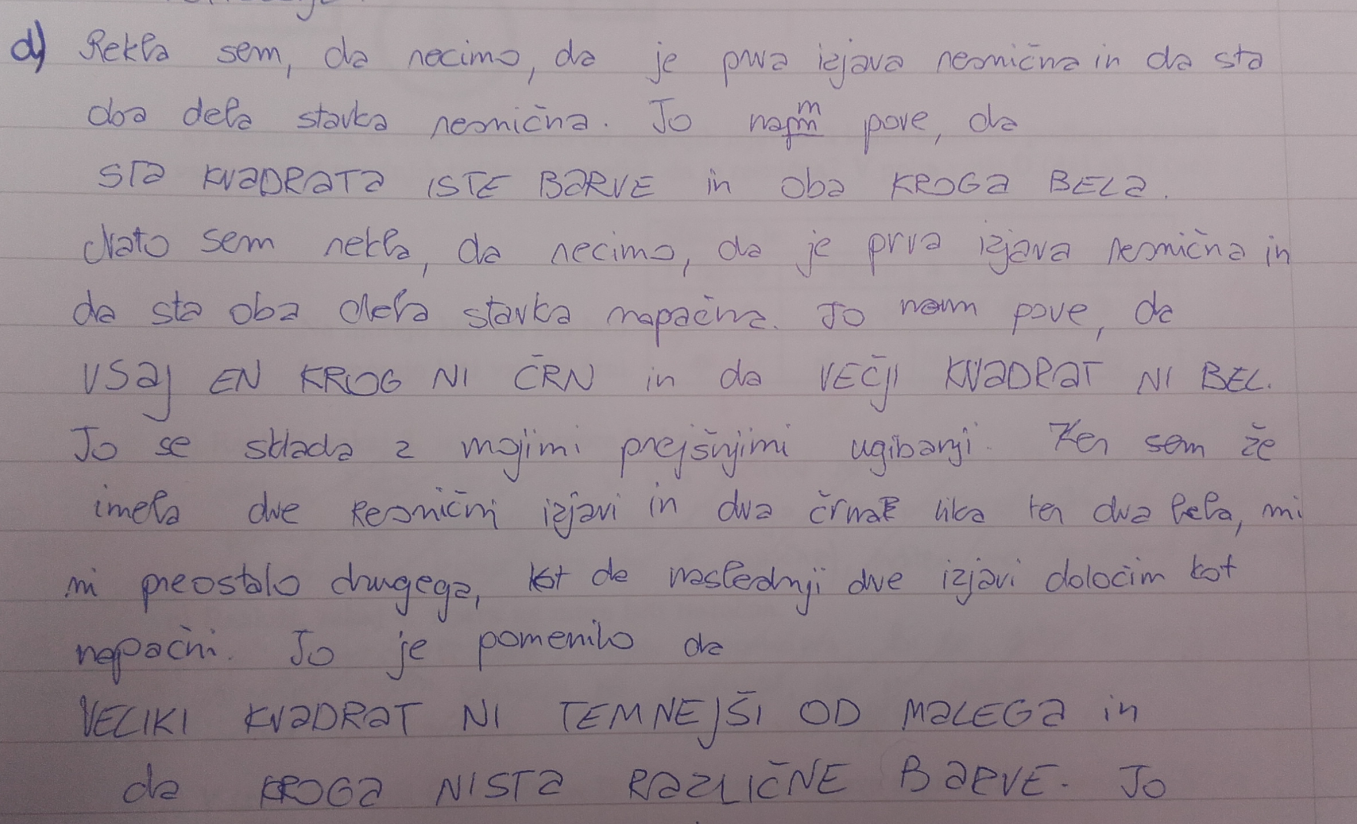 d) Rekla sem, da recimo, da je prva izjava resnična in da sta
oba dela stavka resnična. To nam pove, da
STA KVADRATA ISTE BARVE in oba KROGA BELA.
Nato sem rekla, da recimo, da je prva izjava resnična in
da sta oba dela stavka napačna. To nam pove, da
VSAJ EN KROG NI ČRN in da VEČJI KVADRAT NI BEL.
To se sklada z mojimi prejšnjimi ugibanji. Ker sem že
imela dve resnični izjavi in dva črna lika ter dva bela, mi
ni preostalo drugega, kot da naslednji dve izjavi določim kot
napačni. To je pomenilo da
VELIKI KVADRAT NI TEMNEJŠI OD MALEGA in
da KROGA NISTA RAZLIČNE BARVE. To